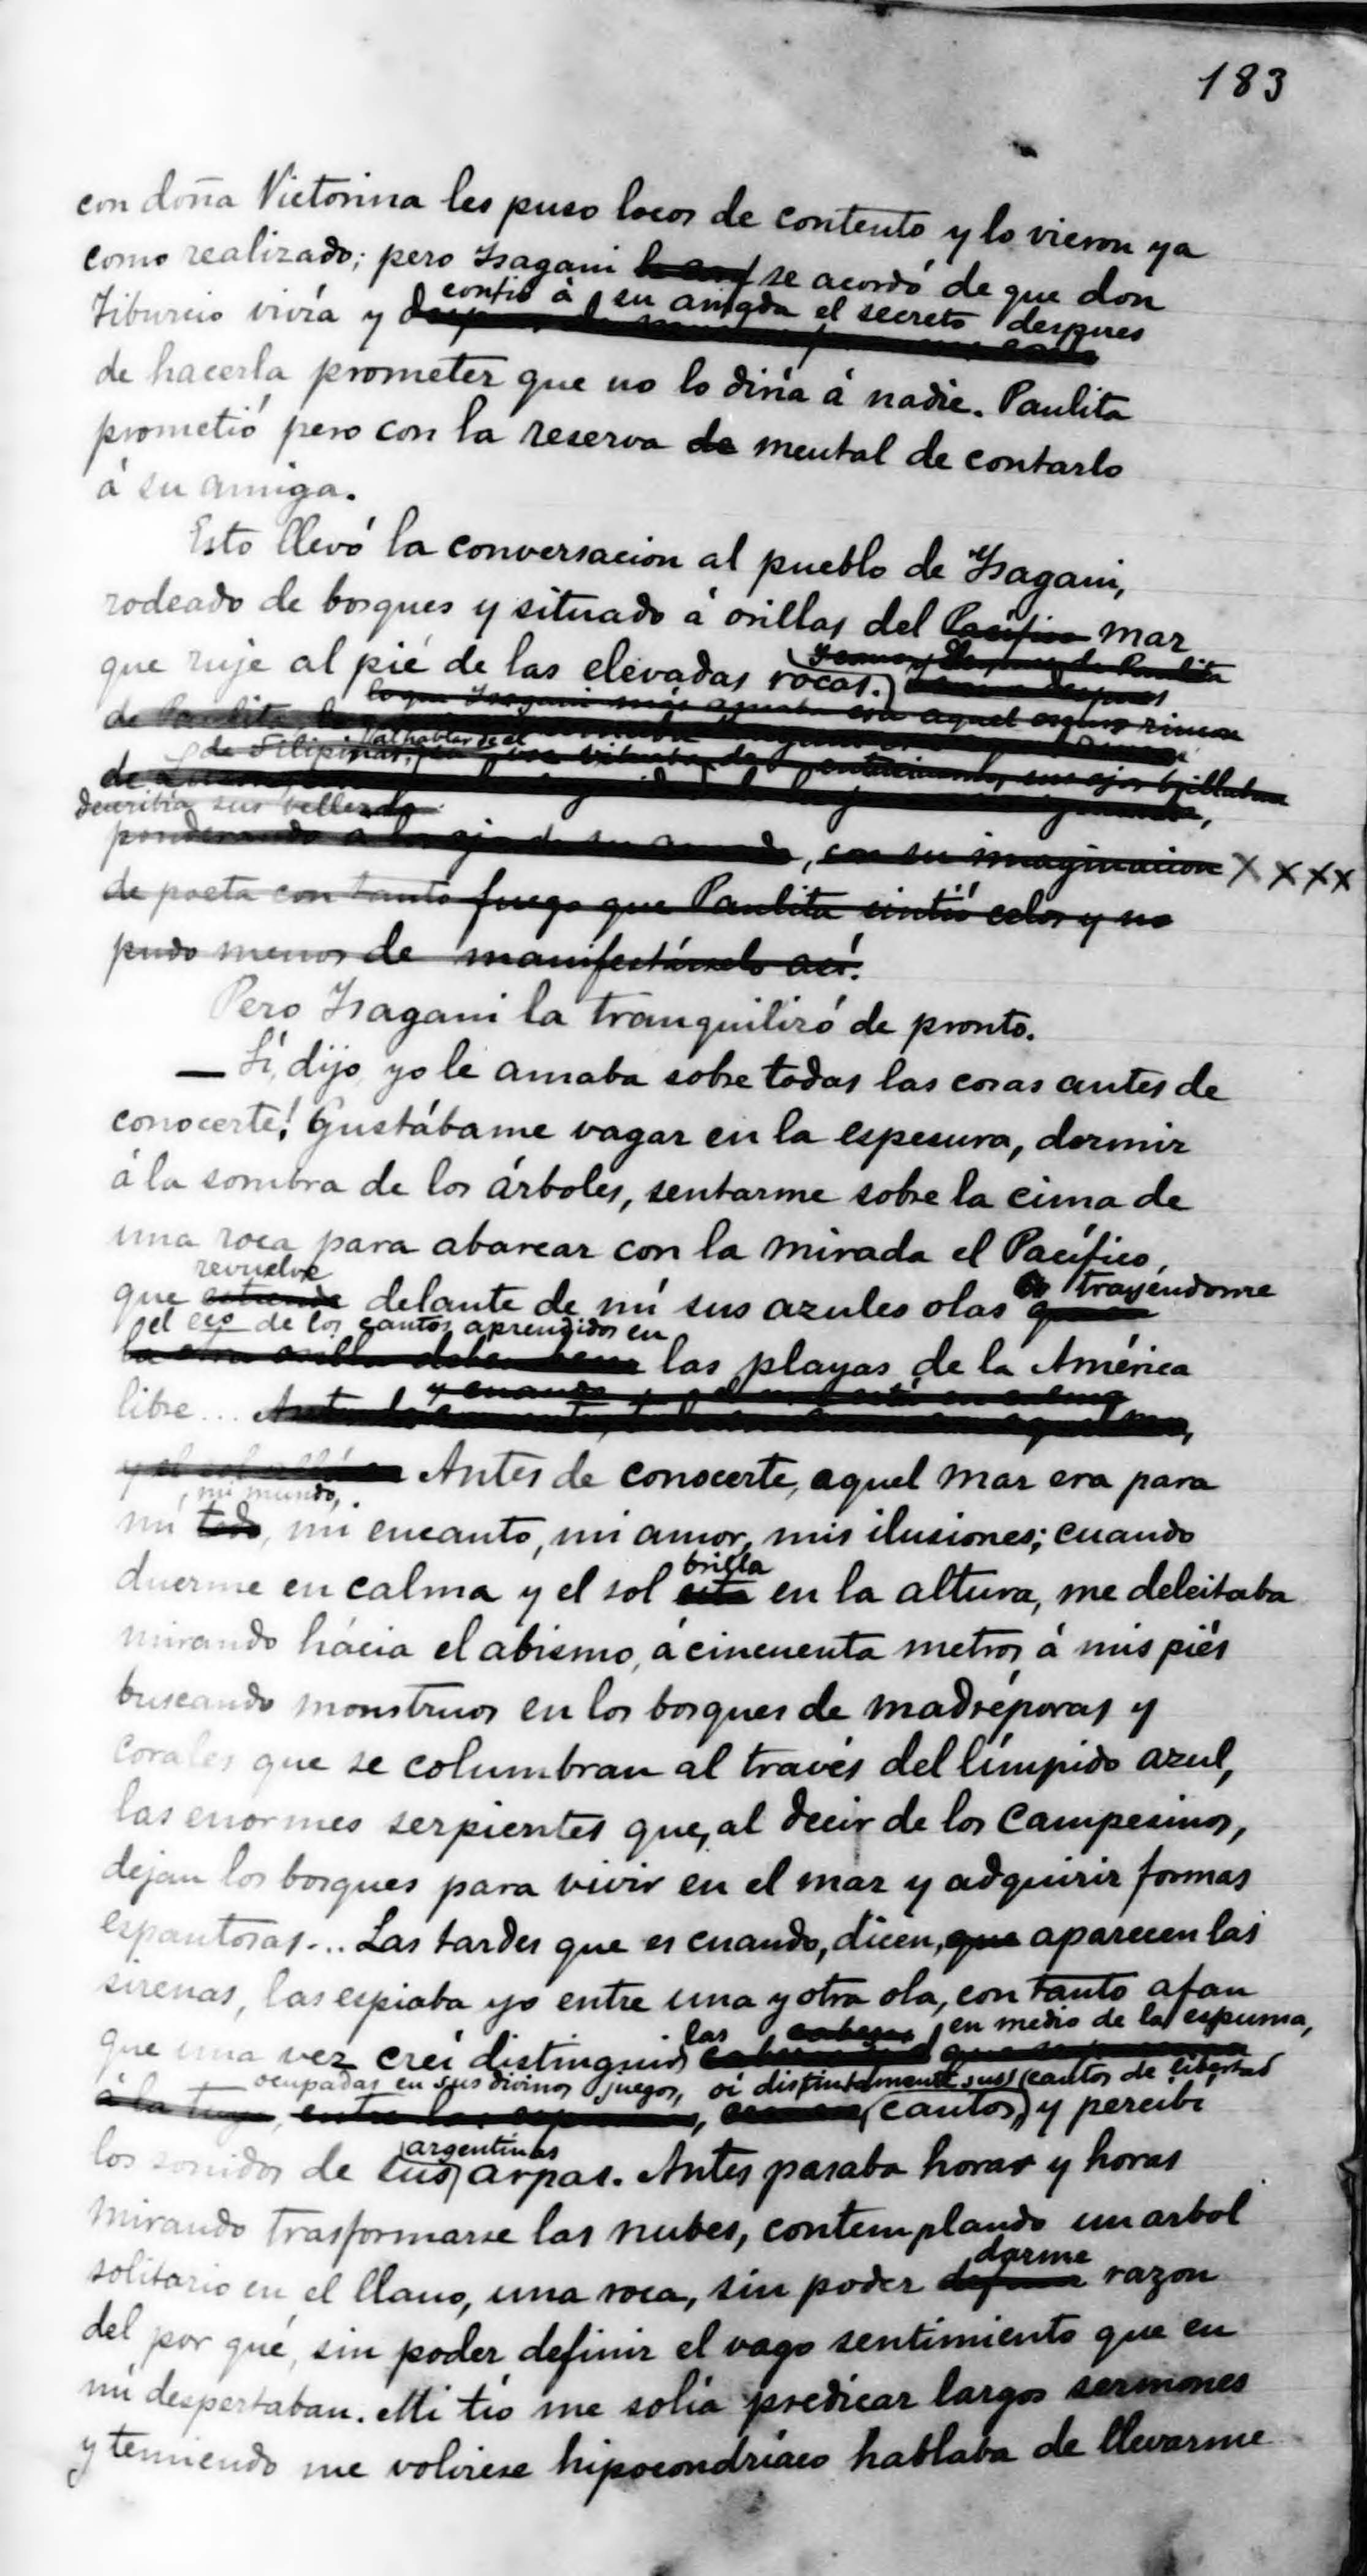 183
con doña Victorina les puso locos de contento y lo vieron ya
como realizado; pero Isagani se acordó de que don
confió á su amada el secreto despues
Tiburcio vivía y
de hacerla prometer que no lo diría á nadie. Paulita
prometió pero con la reserva de mental de contarlo
á su amiga.
Esto llevó la conversacion al pueblo de Isagani,
rodeado de bosques y situado á orillas del Pacífico mar
que ruje al pié de las elevadas rocas.
de Paulita
lo que Isagani más amaba era aquel oscuro rincon
de Paulita
al hablar de el
de Filipinas, entusiasmo, sus ojos brillaban
de
describía sus bellezas
ponderando á los ojos de su amada, con su imaginacion XXXX
de poeta con tanto fuego que Paulita sintió celos y no
pudo menos de manifestárselo así.
Pero Isagani la tranquilizó de pronto.
— Sí, dijo, yo le amaba sobre todas las cosas antes de
conocerte! Gustábame vagar en la espesura, dormir
á la sombra de los árboles, sentarme sobre la cima de
una roca para abarcar con la mirada el Pacífico,
revuelve
que estiende delante de mí sus azules olas trayéndome
el eco de los cantos aprendidos en
la otra orilla las playas de la América
y cuando
libre...
y el sol Antes de conocerte, aquel mar era para
mi mundo,
mí todo, mi encanto, mi amor, mis ilusiones; cuando
brilla
duerme en calma y el sol está en la altura, me deleitaba
mirando hácia el abismo, á cincuenta metros á mis piés
buscando monstruos en los bosques de madréporas y
corales que se columbran al través del límpido azul,
las enormes serpientes que, al decir de los campesinos,
dejan los bosques para vivir en el mar y adquirir formas
espantosas... Las tardes que es cuando, dicen, que aparecen las
sirenas, las espiaba yo entre una y otra ola, con tanto afan
las cabezas en medio de la espuma,
que una vez creí distinguir
ocupadas en sus divinos juegos, oí distintamente sus cantos de libertad
á la tuya, cantos, y percibí
argentinas
los sonidos de sus arpas. Antes pasaba horas y horas
mirando trasformarse las nubes, contemplando un arbol
darme
solitario en el llano, una roca, sin poder razon
del por qué, sin poder definir el vago sentimiento que en
mí despertaban. Mi tío me solía predicar largos sermones
y temiendo me volviese hipocondríaco hablaba de llevarme